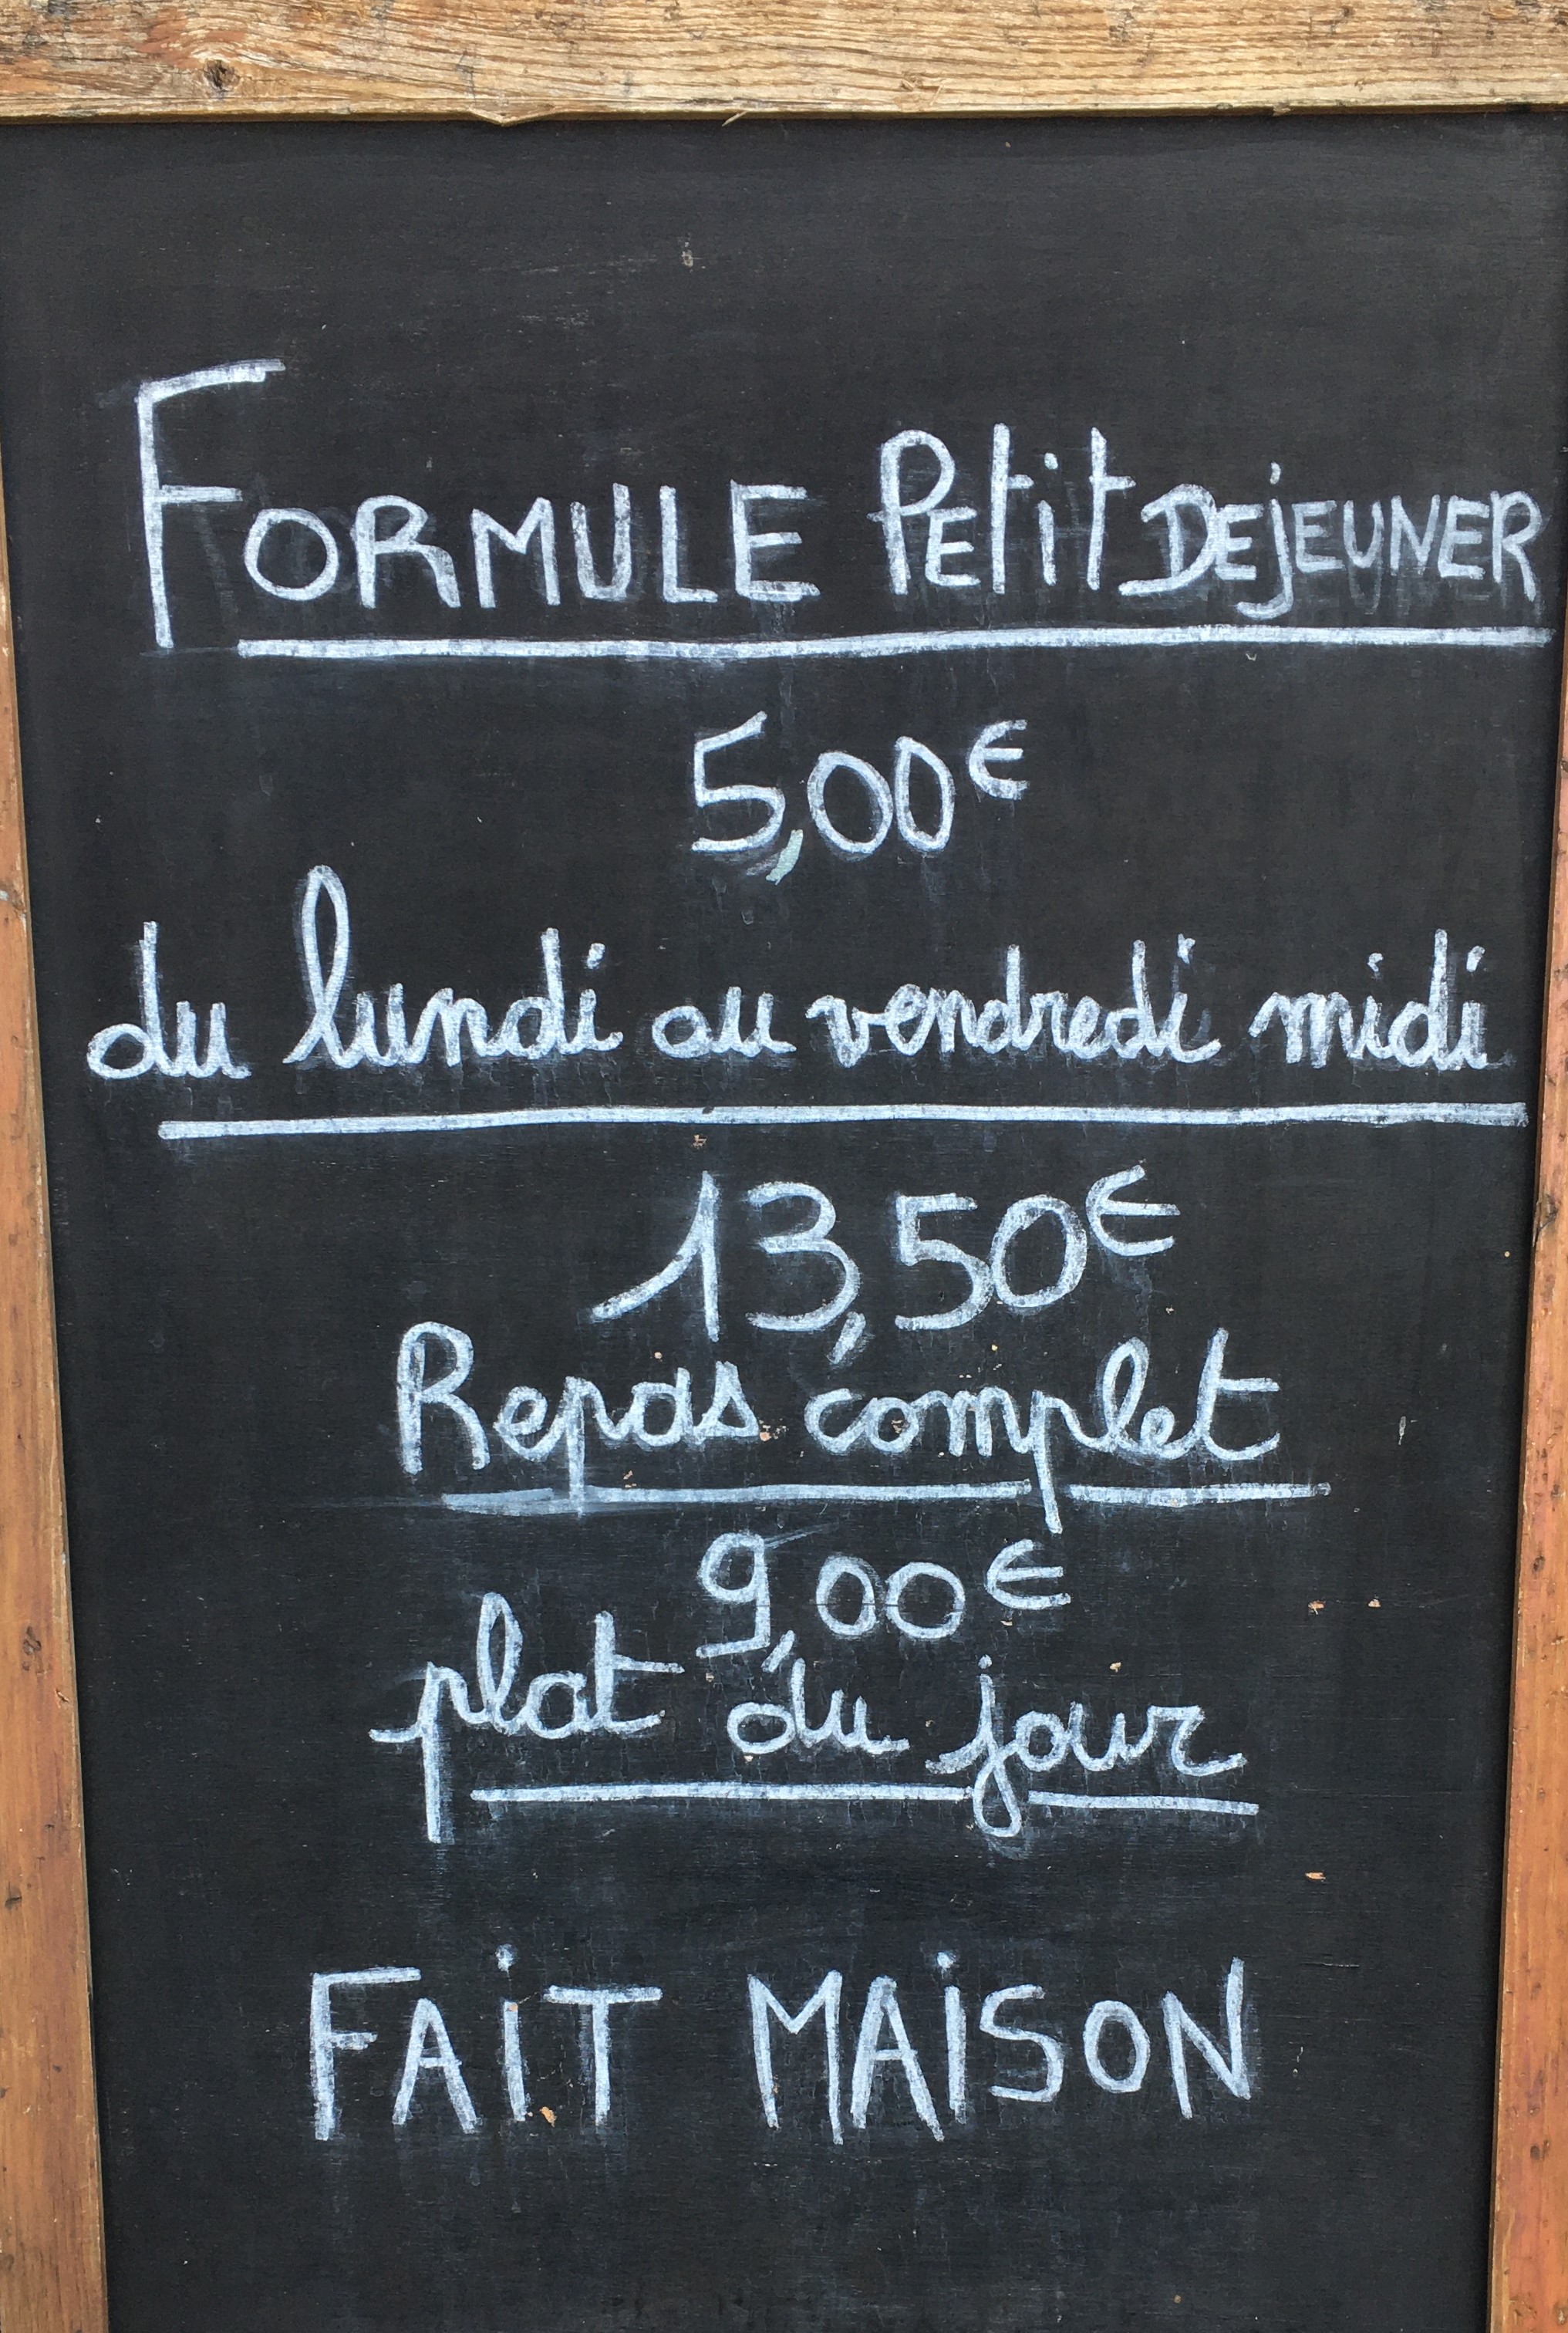 FORMULE Petit DEjEUNER
5,00€
du lundi au vendredi midi
13,50€
Repas complet
9,00€
plat du jour
FAiT MAiSON